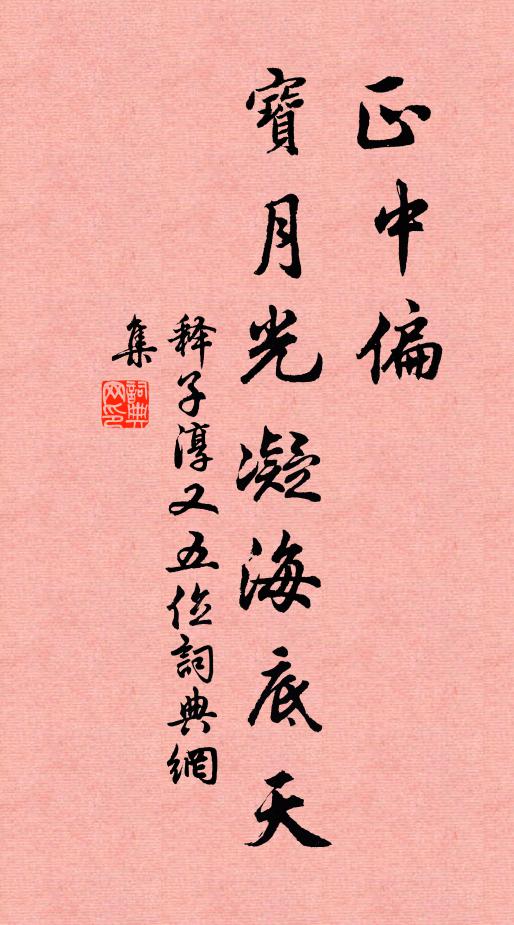 正中偏
寶月光凝海底天
释子淳又五位詞典網
集
詞典網印